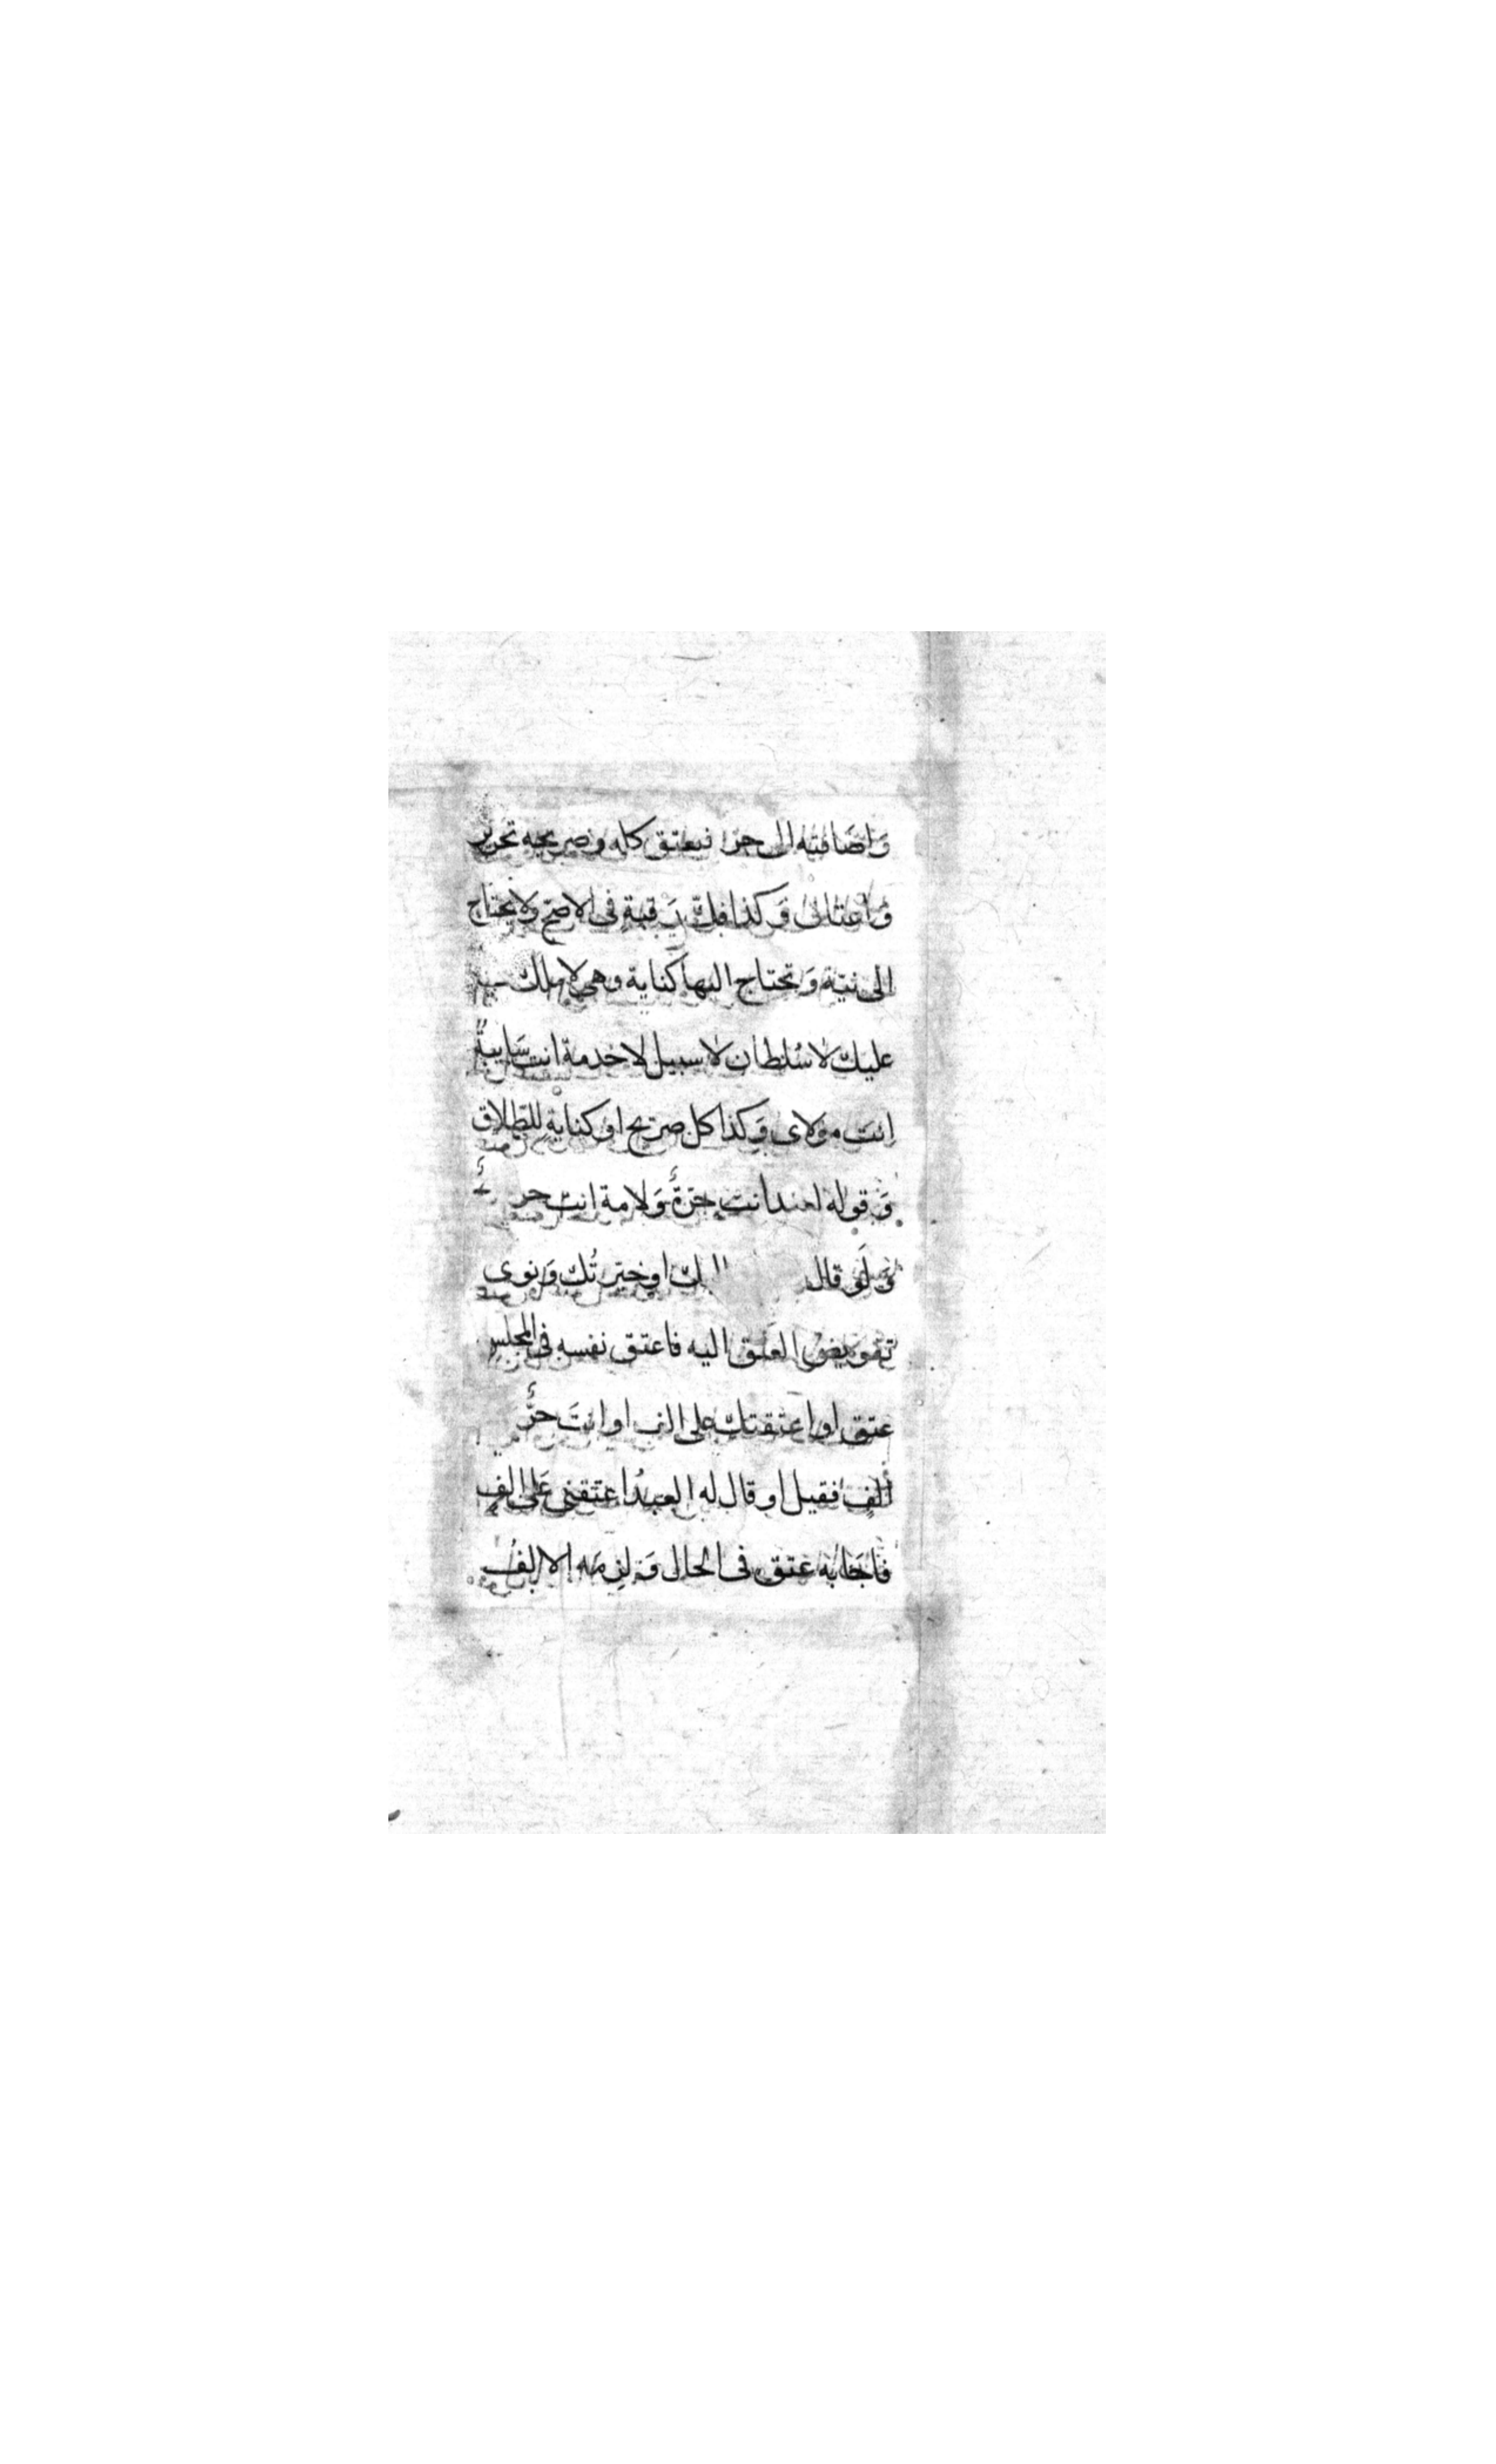 وَاِضَافته الى جزء فيعتق كله وصريحه تحرير
وَاعتاق وَكذا فك رَقبةٍ فى الاصح ولا يحتاج
الى نيّة وَ تحتاج اليها كناية وهى لا ملك
عليك لا سُلطان لا سبيل لا خدمة انت سَايبةٌ
انت مولاى وَكذا كل صريح او كناية للطلاق
وَ قوله لعبد انت حرّةٌ وَلامة انت حرٌ
وَلَو قال اليك او خيّرتُك وَ نوى
تفويض العتق اليه فاعتق نفسه فى المجلس
عتق او اعتقتك على الف او انتَ حرٌّ
ألفٍ فقبل او قال له العبدُ اعتقنى عَلى الفٍ
فاجَابه عتق فى الحال وَ لزمَه الالفُ